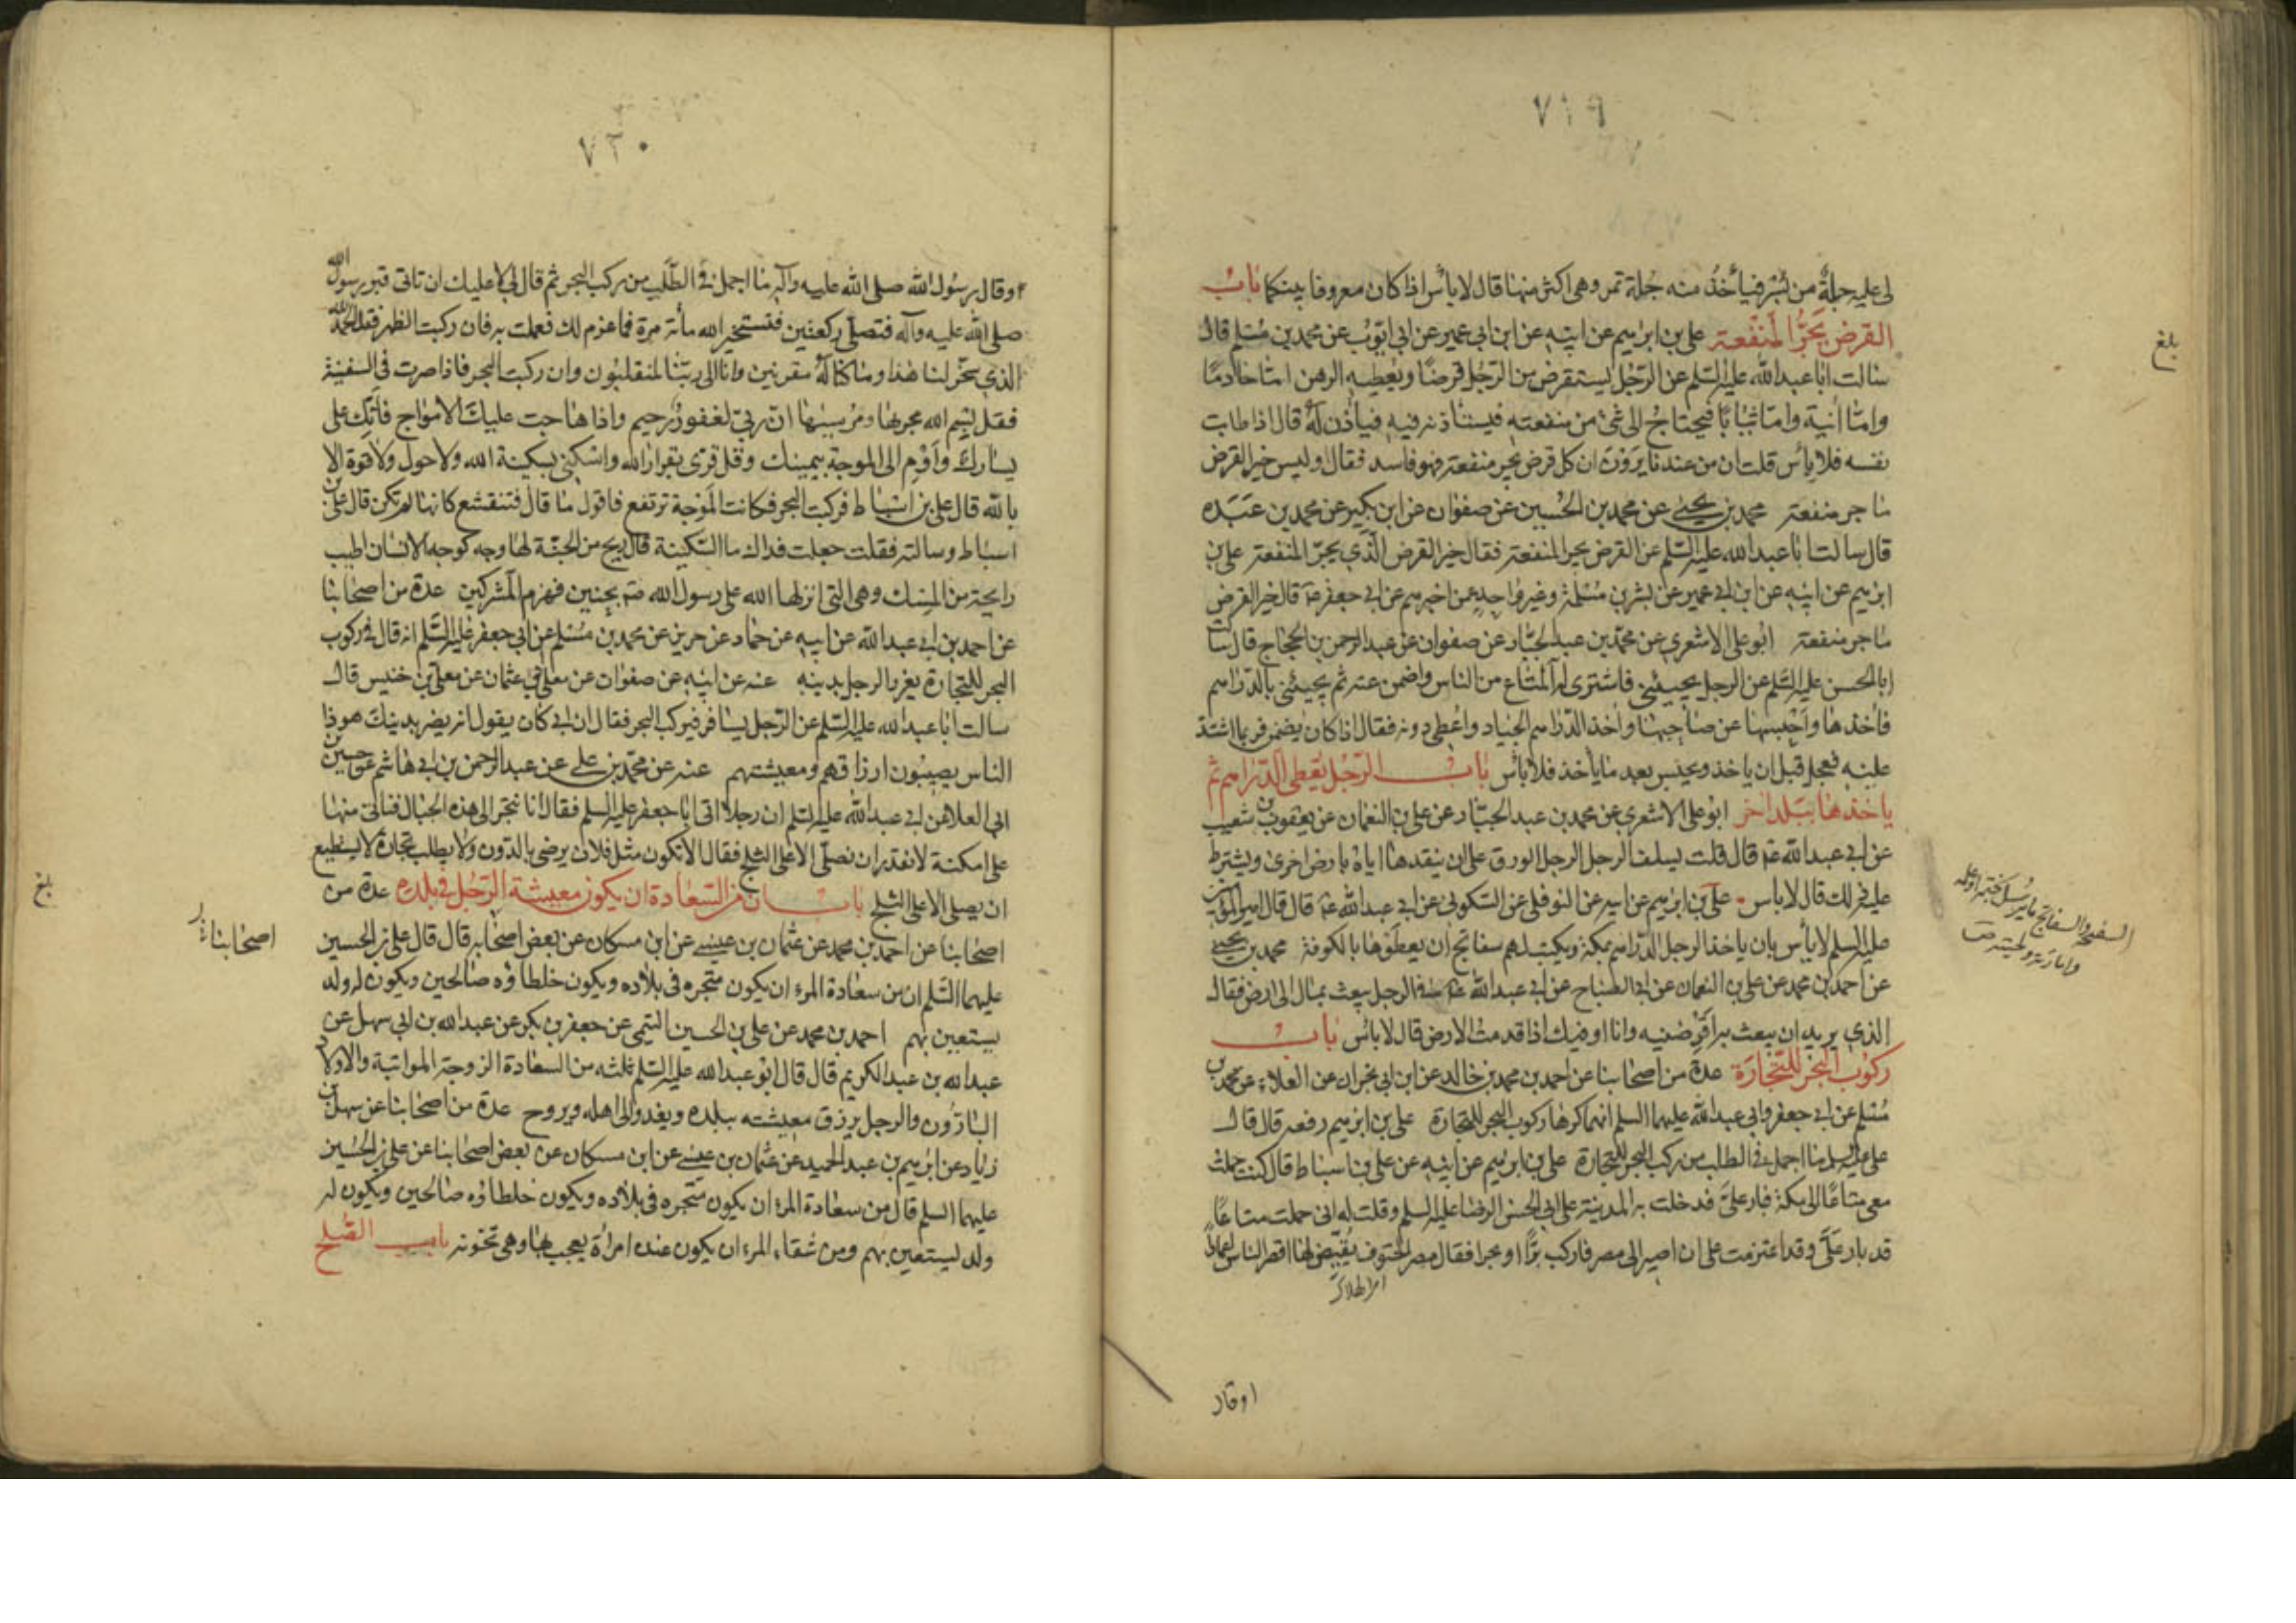 ٧١٩
لى عليه جلة من بُسْر فيأخذ منه جُلة تمر وهى اكثر منها قال لا بأس اذا كان معروفا بينكما باب
القرض يَجُرُّ المَنْفعة على بن ابرٰهيم عن ابيه عن ابن ابى عمير عن ابى ايّوب عن محمد بن مسلم قال
سالت ابا عبد الله عليه السّلم عن الرّجل يستقرض من الرّجل قرضًا ويُعطيه الرهن امّا خادمًا
وامّا آنية وامّا ثيابًا فيحتاج الى شئ من منفعته فيستأذنه فيه فيأذن له قال اذا طابت
نفسه فلا بأس قلت ان من عندنا يروون ان كل قرض يجر منفعة فهو فاسد فقال اوليس خير القرض
ما جر منفعة محمد بن يحيى عن محمد بن الحُسين عن صفوان عن ابن بكير عن محمد بن عَبَدَه
قال سالت ابا عبد الله عليه السّلم عن القرض يجر المنفعة فقال خير القرض الّذى يجرّ المنفعة على بن
ابرٰهيم عن ابيه عن ابن ابى عمير عن بشر بن مَسْلَمَة وغير واحد عمن اخبرهم عن ابى جعفر ع قال خير القرض
ما جر منفعة ابو على الاشعرى عن محمّد بن عبد الجبّار عن صفوان عن عبد الرحمن بن الحجاج قال سالت
ابا الحسن عليه السّلم عن الرجل يجيئنى فاشترى له المتاع من الناس واضمن عنه ثم يجيئنى بالدّراهم
فآخذها واحبسها عن صاحبها وآخذ الدّراهم الجياد واعطى دونه فقال اذا كان يضمن فربما اشتد
عليه فعجل قبل ان ياخذ ويحبس بعد ما يأخذ فلا بأس باب الرّجل يُعْطى الدّراهم ثم
ياخذها ببَلد آخر ابو على الاشعرى عن محمد بن عبد الجبّار عن على بن النعمان عن يعقوب بن شعيب
عن ابى عبد الله ع قال قلت يسلف الرجل الرجل الورق على ان ينقدها اياه بارض اخرى ويشترط
عليه ذلك قال لا باس على بن ابرٰهيم عن ابيه عن النوفلى عن السّكونى عن ابى عبد الله ع قال قال امير المؤمنين
عليه السلم لا بأس بان ياخذ الرجل الدّراهم بمكة ويكتب لهم سفاتج ان يعطوها بالكوفة محمد بن يحيى
عن احمد بن محمد عن على بن النعمان عن ابى الصّباح عن ابى عبد الله ع فى الرجل يبعث بمال الى ارض فقال
الذى يريد ان يبعث به اقرضنيه وانا اوفيك اذا قدمت الارض قال لا بأس باب
ركوب البحر للتّجارَة عدة من اصحابنا عن احمد بن محمد بن خالد عن ابن ابى نجران عن العلاء عن محمد بن
مُسلم عن ابى جعفر وابى عبد الله عليهما السلم انهما كرها ركوب البحر للتجارة على بن ابرٰهيم رفعه قال قال
على عليه السلم ما اجمل فى الطلب من ركب البحر للتّجارة على بن ابرٰهيم عن ابيه عن على بن اسباط قال كنت حملت
معى متاعًا الى مكة فبار علىّ فدخلت به المدينة على ابى الحسن الرضا عليه السلم وقلت له انى حملت متاعًا
قد بار علىّ وقد اعتزمت على ان اصير الى مصر فاركب برًّا او بحرا فقال مصر الحتوف يُقيّض لها اقصر الناس اعمارًا
اوقال
بلغ
٧٢٠
وقال رسُول الله صلى الله عليه وآله ما اجمل فى الطّلب من ركب البحر ثم قال لى لا عليك ان تاتى قبر رسول الله
صلى الله عليه وآله فتصلّى ركعتين فتستخير الله مأة مرة فما عزم لك فعملت به فان ركبت الظهر فقل الحمد لله
الذى سخّر لنا هذا وما كنّا له مقرنين وانا الى ربّنا لمنقلبُون وان ركبت البحر فاذا صرت فى السفينة
فقل بسم الله مجرٰها ومرسيٰها انّ ربى لغفورٌ رحيم واذا هاجت عليك الامواج فاتّك على
يسارك وَاَوْم الى الموجة بيمينك وقل قرّى بقرار الله واسكنى بسكينة الله ولا حول ولا قوة الا
بالله قال على بن اسباط فركبت البحر فكانت المَوجة ترتفع فاقول ما قال فتنقشع كانها لم تكن قال على بن
اسباط وسالته فقلت جعلت فداك ما السّكينة قال ريح من الجنّة لها وجه كوجه الانسان اطيب
رايحة من المسك وهى التى انزلها الله على رسول الله صلم بحنين فهزم المشركين عدة من اصحابنا
عن احمد بن ابى عبد الله عن ابيه عن حمّاد عن حريز عن محمد بن مُسلم عن ابى جعفر عليه السّلم انه قال فى ركوب
البحر للتجارة يغرر الرجل بدينه عنه عن ابيه عن صفوان عن معلى ابى عثمان عن معلى بن خنيس قال
سالت ابا عبد الله عليه السّلم عن الرّجل يسافر فيركب البحر فقال ان ابى كان يقول انه يضر بدينك هو ذا
الناس يصيبُون ارزاقهم ومعيشتهم عنه عن محمّد بن على عن عبد الرحمن بن ابى هاشم عن حسين بن
ابى العلا عن ابى عبد الله عليه السّلم ان رجلا اتى ابا جعفر عليه السلم فقال انا نتجر الى هذه الجبال فناتى منها
على امكنة لا نقدر ان نصلّى الا على الثلج فقال الا تكون مثل فلان يرضى بالدّون ولا يطلب تجارة لا يستطيع
ان يصلى الا على الثلج باب ان من السّعادة ان يكون معيشة الرّجل فى بلده عدة من
اصحابنا عن احمد بن محمد عن عثمان بن عيسى عن ابن مسكان عن بعض اصحابه قال قال على بن الحسين
عليهما السّلم ان من سعادة المرء ان يكون متجره فى بلاده ويكون خلطاؤه صالحين ويكون له ولد
يستعين بهم احمد بن محمد عن على بن الحسين التيمى عن جعفر بن بكر عن عبد الله بن ابى سهل عن
عبد الله بن عبد الكريم قال قال ابو عبد الله عليه السّلم ثلثه من السعادة الزوجة المواتية والاولاد
البارّون والرجل يرزق معيشته ببلده ويغدو الى اهله ويروح عدة من اصحابنا عن سهل بن
زياد عن ابرٰهيم بن عبد الحميد عن عثمان بن عيسى عن ابن مسكان عن بعض اصحابنا عن على بن الحُسين
عليهما السلم قال من سعادة المرء ان يكون متجره فى بلاده ويكون خلطاؤه صالحين ويكون له
ولد يستعين بهم ومن شقاء المرء ان يكون عنده امرأة يعجب بها وهى تخونه باب الصُّلح
اصحابنا
بلغ